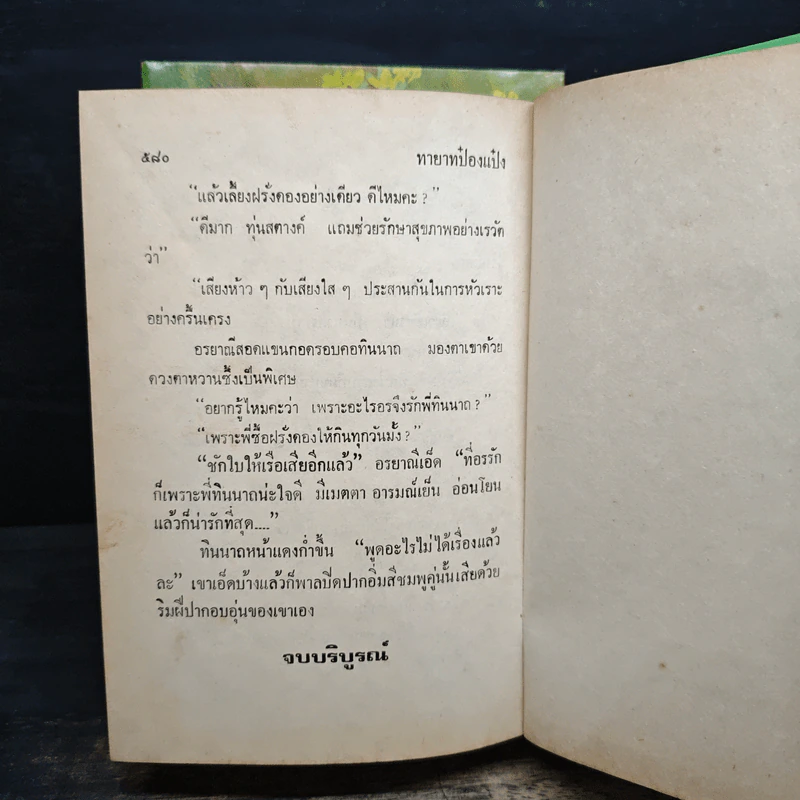 ๕๘๐ ทายาทป๋องแป๋ง
“แล้วเลี้ยงฝรั่งดองอย่างเดียว ดีไหมคะ ?”
“ดีมาก ทุ่นสตางค์ แถมช่วยรักษาสุขภาพอย่างเรวัต
ว่า”
“เสียงห้าว ๆ กับเสียงใส ๆ ประสานกันในการหัวเราะ
อย่างครื้นเครง
อรยาณีสอดแขนกอดรอบคอทินนาถ มองตาเขาด้วย
ดวงตาหวานซึ้งเป็นพิเศษ
“อยากรู้ไหมคะว่า เพราะอะไรอรจึงรักพี่ทินนาถ ?”
“เพราะพี่ซื้อฝรั่งดองให้กินทุกวันมั้ง ?”
“ชักใบให้เรือเสียอีกแล้ว” อรยาณีเอ็ด “ที่อรรัก
ก็เพราะพี่ทินนาถน่ะใจดี มีเมตตา อารมณ์เย็น อ่อนโยน
แล้วก็น่ารักที่สุด....”
ทินนาถหน้าแดงก่ำขึ้น “พูดอะไรไม่ได้เรื่องแล้ว
ละ” เขาเอ็ดบ้างแล้วก็พาลปิดปากอิ่มสีชมพูคู่นั้นเสียด้วย
ริมฝีปากอบอุ่นของเขาเอง
จบบริบูรณ์